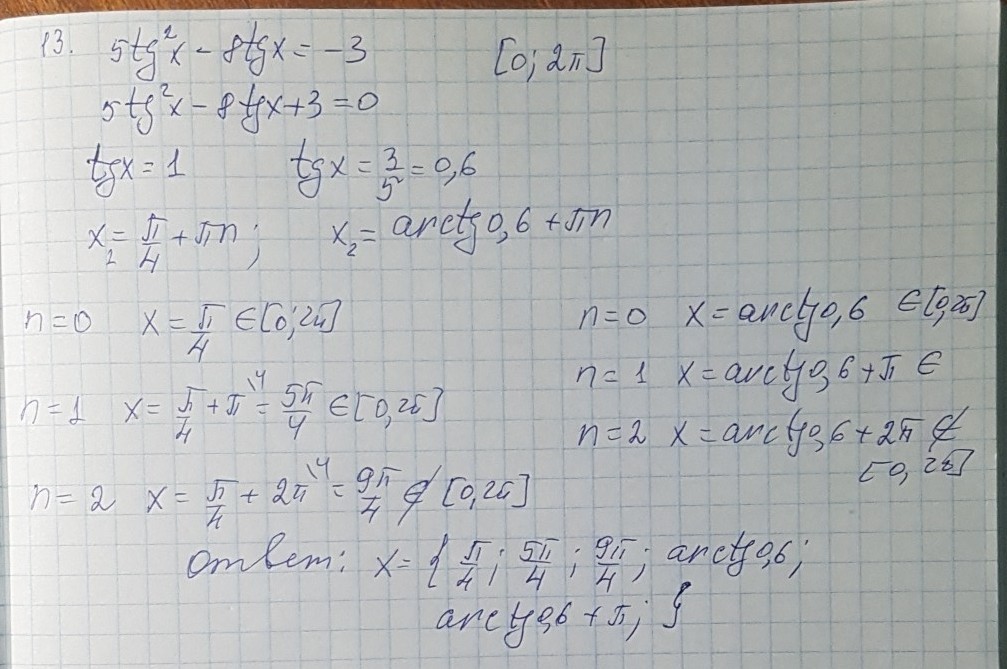 13. 5tg²x - 8tgx = -3 [0; 2π]
5tg²x - 8tgx + 3 = 0
tgx = 1 tgx = 3/5 = 0,6
x₁ = π/4 + πn; x₂ = arctg 0,6 + πn
n=0 x = π/4 ∈ [0; 2π]
n=1 x = π/4 + π\4 = 5π/4 ∈ [0, 2π]
n=2 x = π/4 + 2π\4 = 9π/4 ∉ [0, 2π]
n=0 x = arctg 0,6 ∈ [0, 2π]
n=1 x = arctg 0,6 + π ∈
n=2 x = arctg 0,6 + 2π ∉
[0, 2π]
Ответ: x = { π/4; 5π/4; 9π/4; arctg 0,6;
arctg 0,6 + π; }